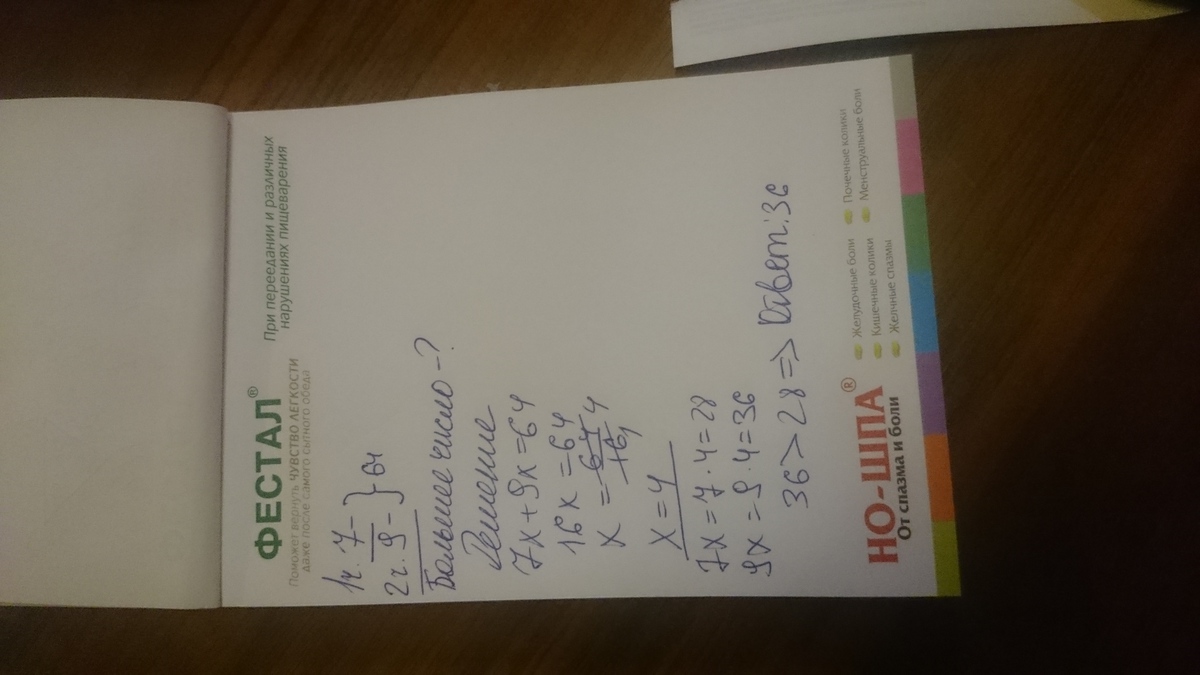 ФЕСТАЛ®
Поможет вернуть ЧУВСТВО ЛЕГКОСТИ
даже после самого сытного обеда
При переедании и различных
нарушениях пищеварения
1ч. 7-
2ч. 9- } 64
Большее число -?
Решение
7x+9x=64
16x=64
x=64/16 4
x=4
7x=7·4=28
9x=9·4=36
36>28=> Ответ:36
НО-ШПА®
От спазма и боли
Желудочные боли
Кишечные колики
Желчные спазмы
Почечные колики
Менструальные боли